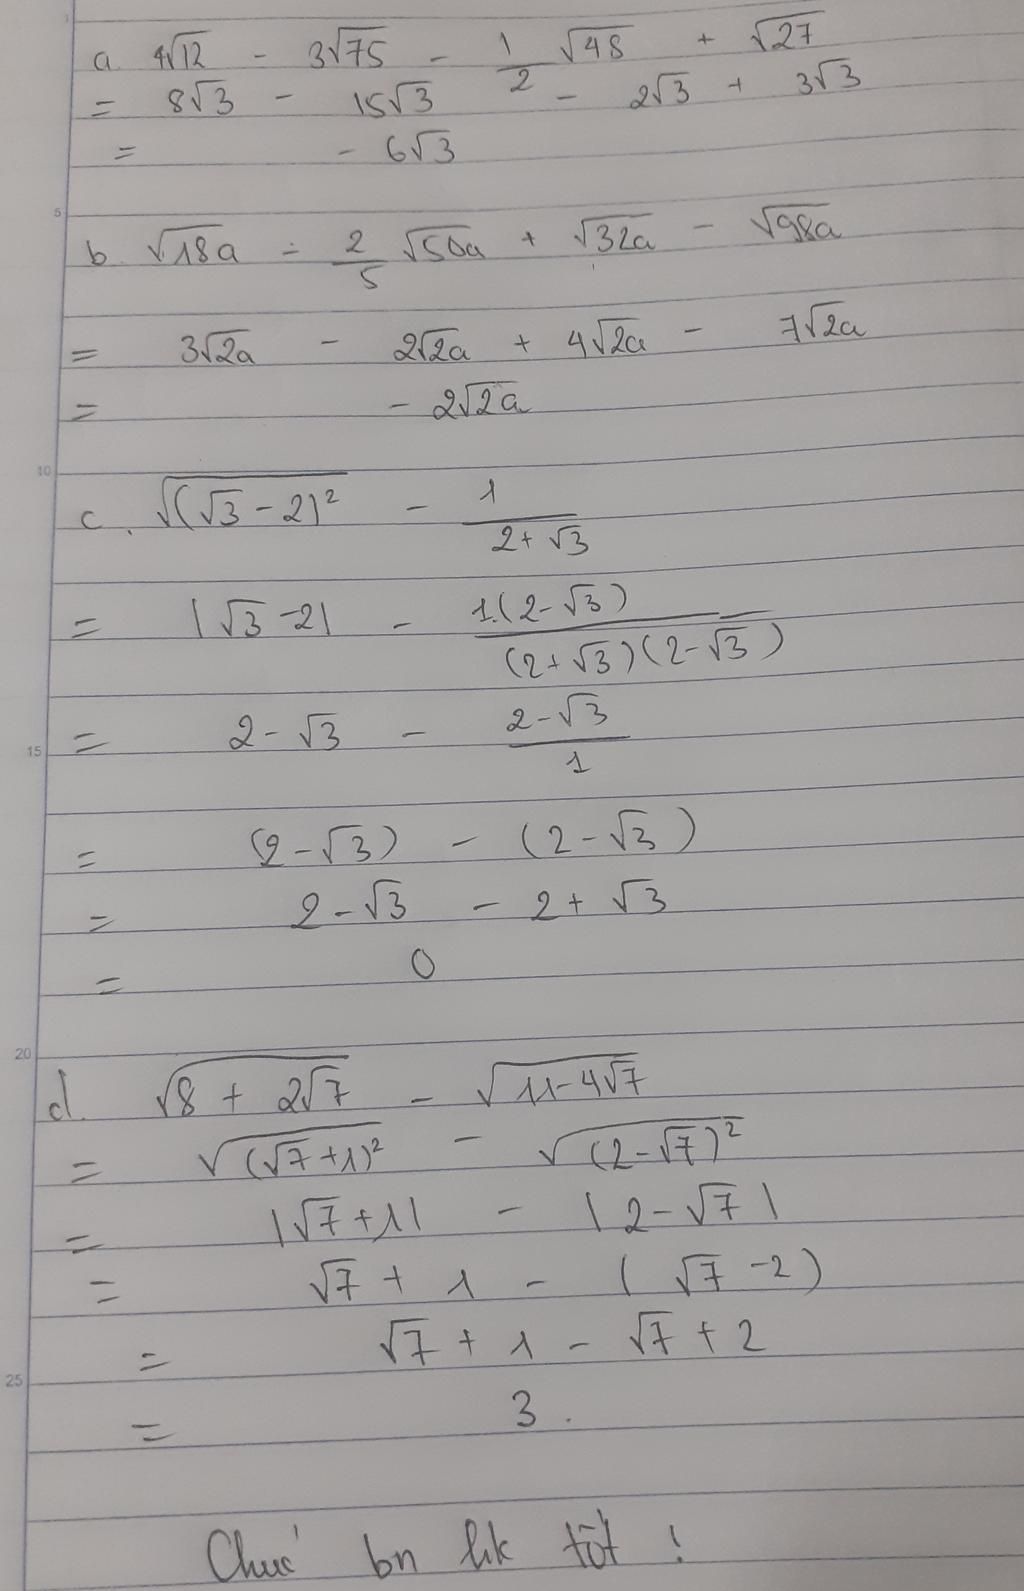 a. 4√12 - 3√75 - 1/2 √48 + √27
= 8√3 - 15√3 - 2√3 + 3√3
= - 6√3
5
b. √18a - 2/5 √50a + √32a - √98a
= 3√2a - 2√2a + 4√2a - 7√2a
= - 2√2a
10
c. √(√3 - 2)² - 1/(2 + √3)
= |√3 - 2| - 1.(2 - √3)/(2 + √3)(2 - √3)
15
= 2 - √3 - (2 - √3)/1
= (2 - √3) - (2 - √3)
= 2 - √3 - 2 + √3
= 0
20
d. √8 + 2√7 - √11 - 4√7
= √(√7 + 1)² - √(2 - √7)²
= |√7 + 1| - |2 - √7|
= √7 + 1 - (√7 - 2)
= √7 + 1 - √7 + 2
25
= 3.
Chúc bn hk tốt !